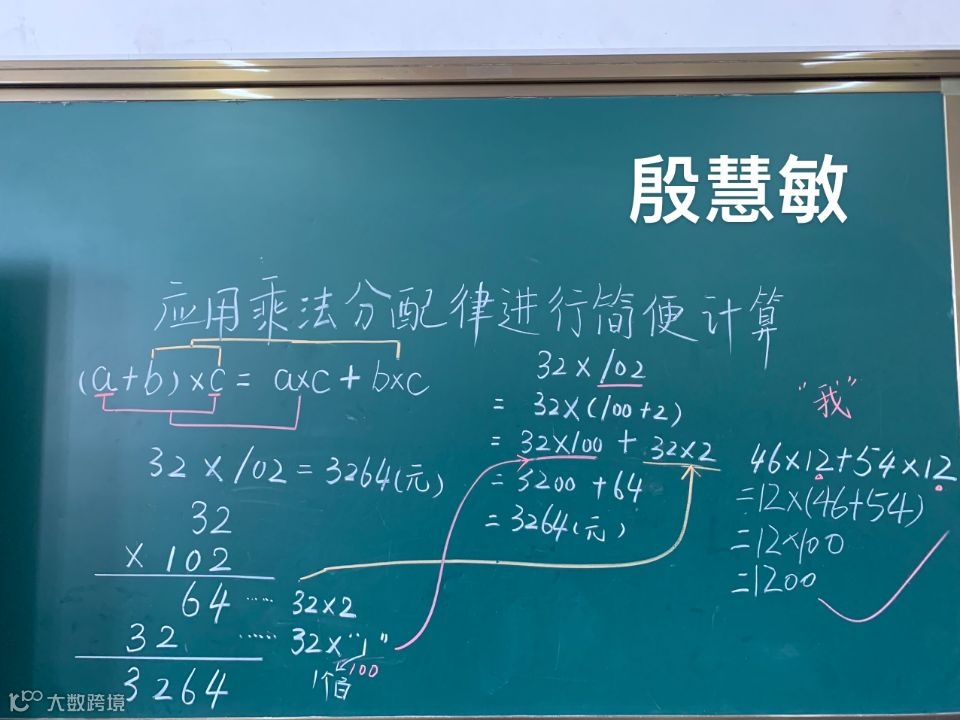 殷慧敏
应用乘法分配律进行简便计算
(a+b)×c = a×c + b×c
32×102=3264(元)
32
×102
64 …… 32×2
32 …… 32×"1"
100
1个百
3264
32×102
= 32×(100+2)
= 32×100 + 32×2
= 3200 + 64
= 3264(元)
"我"
46×12+54×12
=12×(46+54)
=12×100
=1200
大数跨境